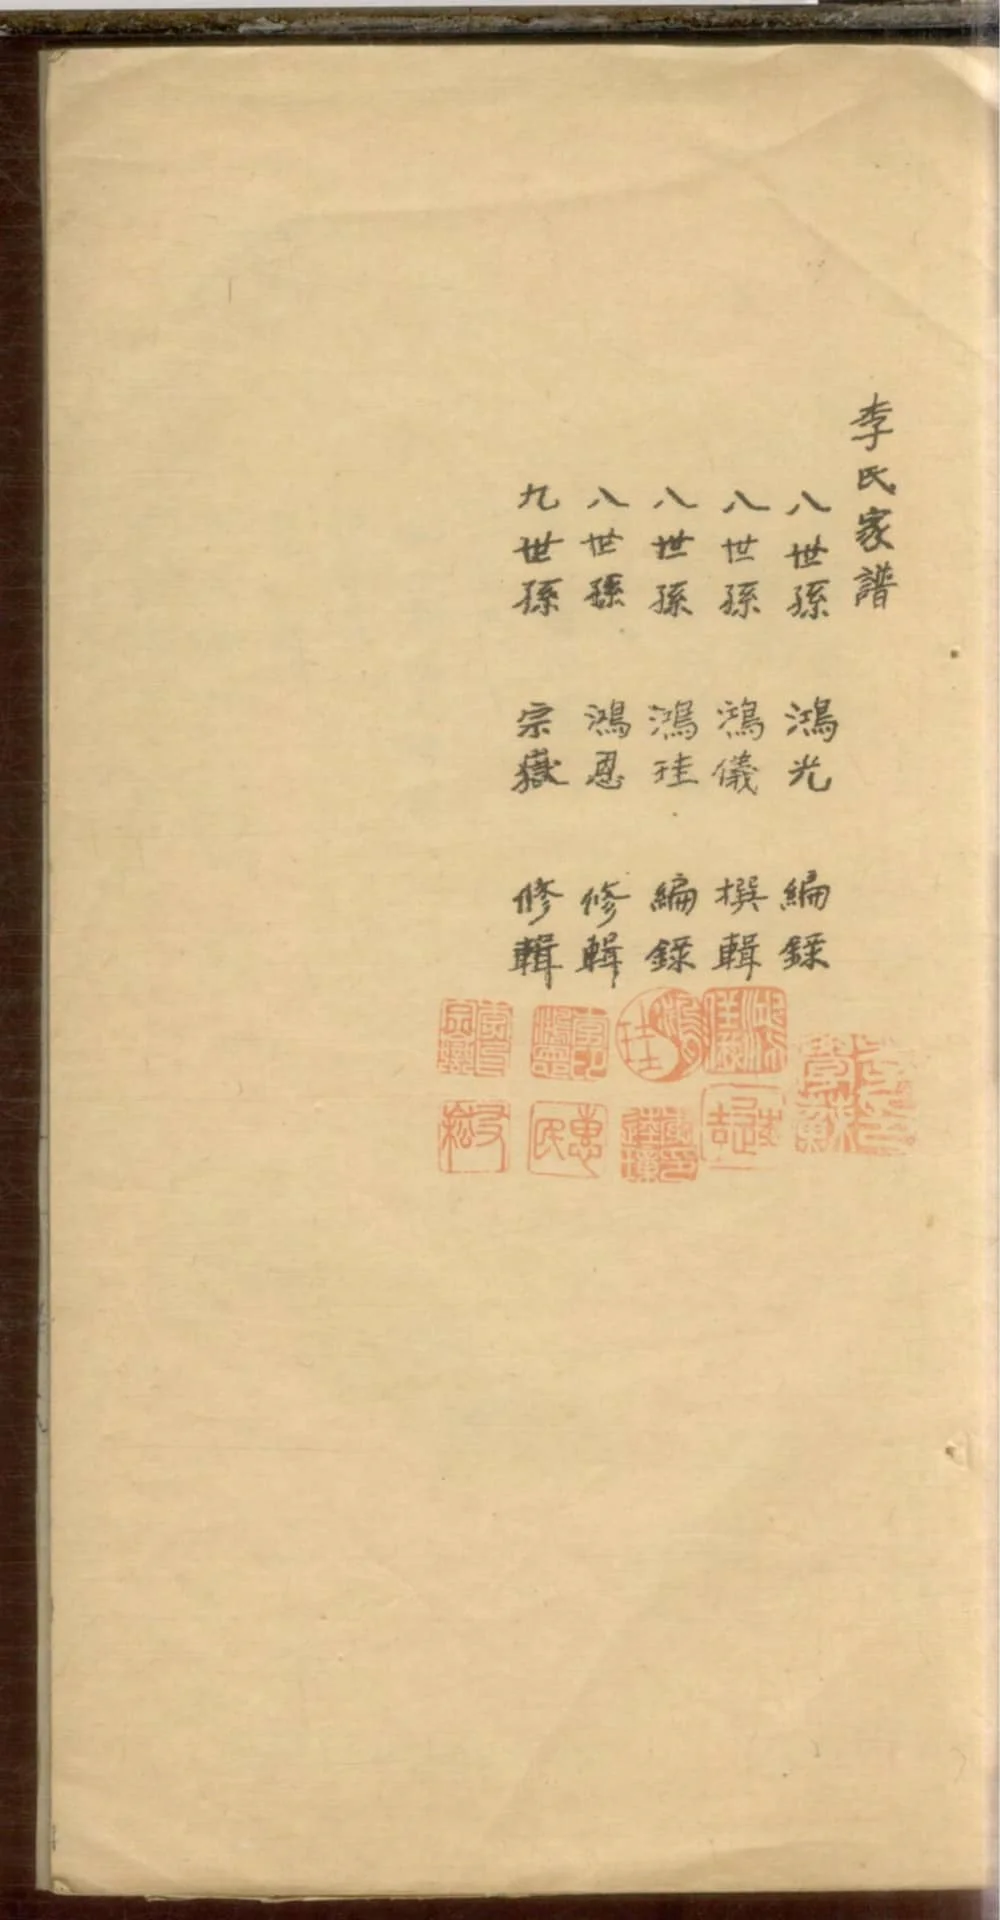 李氏家譜
八世孫 鴻光 編錄
八世孫 鴻儀 撰輯
八世孫 鴻珪 編錄
八世孫 鴻恩 修輯
九世孫 宗嶽 修輯
鴻儀
鴻珪
惠民